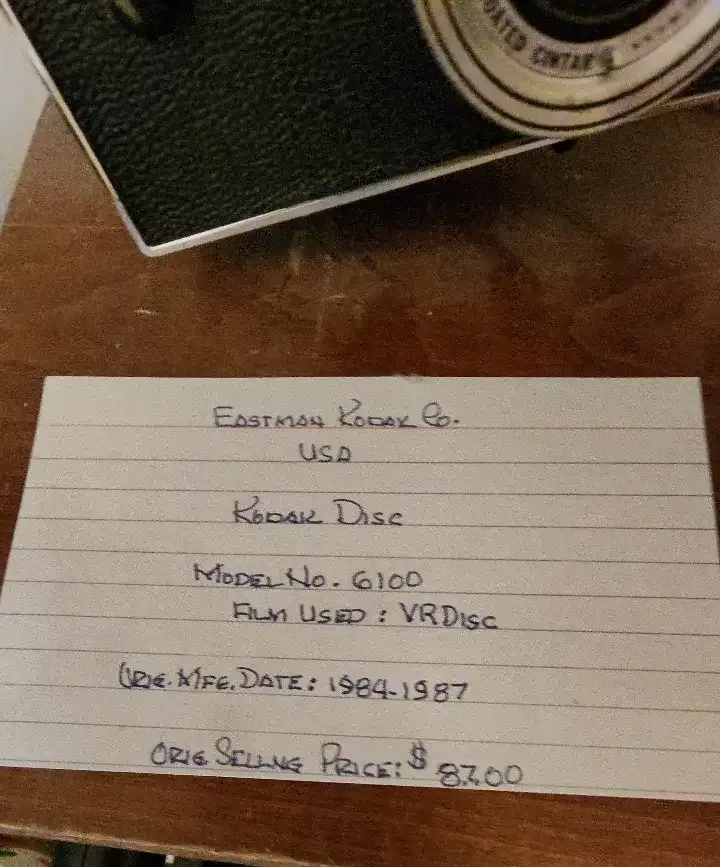 COATED CINTAR
EASTMAN KODAK CO.
USA
KODAK DISC
MODEL NO. 6100
FILM USED: VR DISC
ORIG. MFG. DATE: 1984-1987
ORIG SELLING PRICE: $ 87.00